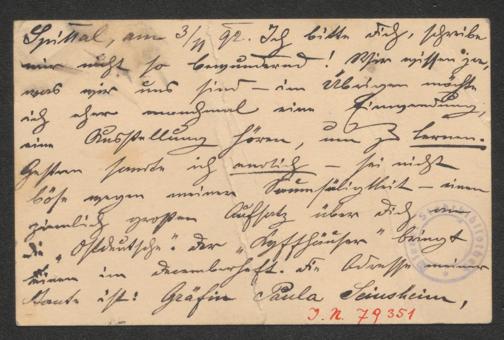 Spittal, am 3/II 92. Ich bitte Dich, schreibe
mir nicht so bewundernd! Wir wissen ja,
was wir uns sind – im Übrigen möchte
ich eher manchmal eine Einwendung,
eine Ausstellung hören, um zu lernen.
Gestern sandte ich endlich – sei nicht
böse wegen meiner Saumseligkeit – einen
ziemlich großen Aufsatz über Dich an
die „Ostdeutsche". Der „Kyffhäuser" bringt
einen im Decemberheft. Die Adresse meiner
Tante ist: Gräfin Paula Seinsheim,
I.N. 79351